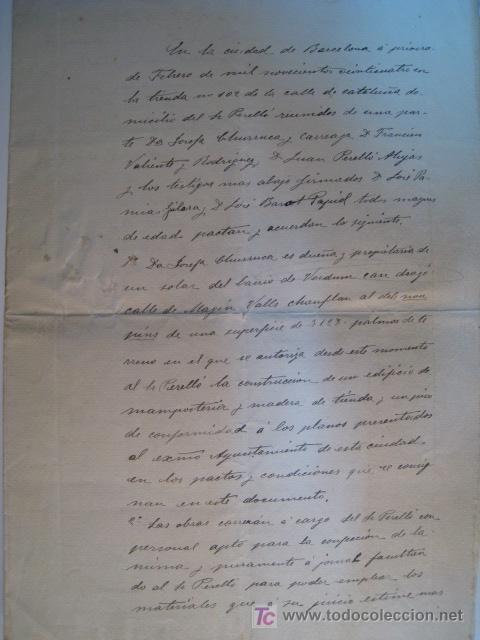 En la ciudad de Barcelona á primero
de Febrero de mil novecientos veinticuatro en
la tienda nº 102 de la calle de Cataluña do-
micilio del Sr Perelló reunidos de una par-
te Dª Josefa Churruca y Carreaga, D. Francisco
Valiente y Rodriguez, D. Juan Perelló Alejos
y los testigos mas abajo firmados D. José
y D. José Barat Pujol todos mayores
de edad pactan y acuerdan lo siguiente.
1º Da Josefa Churruca es dueña y propietaria de
un solar del barrio de Verdum can dragó
calle de Magin Valls chanflan al
de una superficie de 3123 palmos de te
rreno en el que se autoriza desde este momento
al Sr Perelló la construccion de un edificio de
mamposteria y madera de tienda y un piso
de conformidad á los planos presentados
al exmo Ayuntamiento de esta ciudad,
en los pactos y condiciones que se consig
nan en este documento.
2º Las obras correrán á cargo del Sr Perelló con
personal apto para la confeccion de la
misma y puramente á jornal facultan
do al Sr Perelló para poder emplear los
materiales que á su juicio estime mas
TC
todocoleccion.net
www.todocoleccion.net